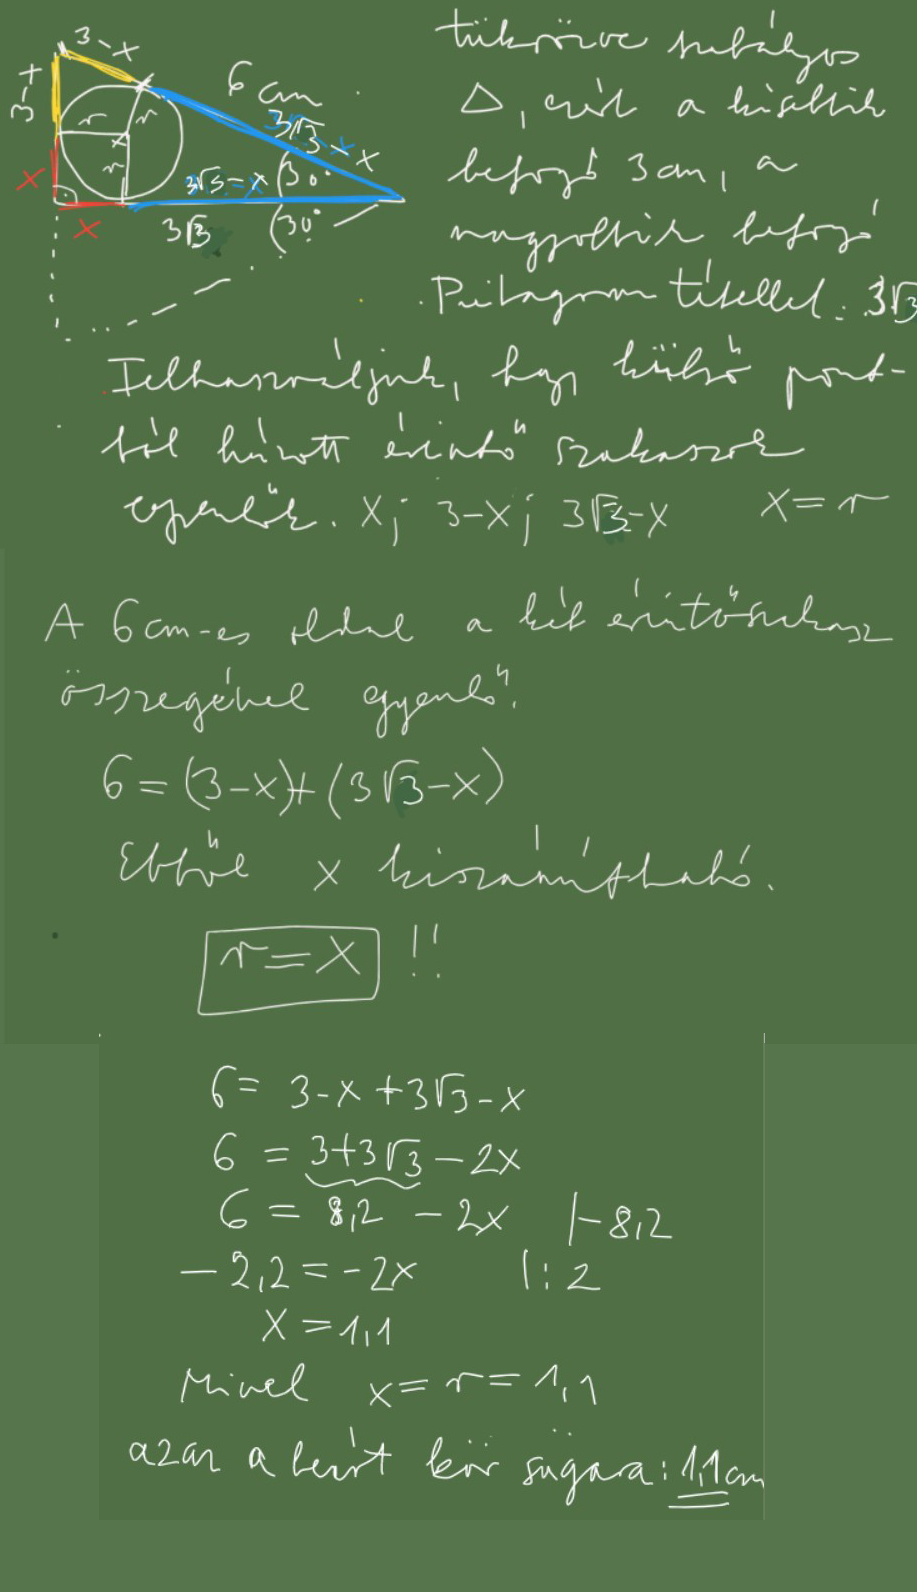 3-x
6 cm
3-x
r r
r
x
x
3√3-x
3√3-x
30°
x
3√3
30°
tükrözve szabályos
Δ, ezért a kisebbik
befogó 3 cm, a
nagyobbik befogó
Pitagorasz tétellel: 3√3
Felhasználjuk, hogy külső pont-
ból húzott érintő szakaszok
egyenlők. x; 3-x; 3√3-x x=r
A 6 cm-es oldal a két érintőszakasz
összegével egyenlő.
6=(3-x)+(3√3-x)
Ebből x kiszámítható.
r=x !!
6= 3-x+3√3-x
6 = 3+3√3-2x
6 = 8,2 -2x |-8,2
-2,2=-2x |:2
x=1,1
Mivel x=r=1,1
azaz a beírt kör sugara: 1,1 cm